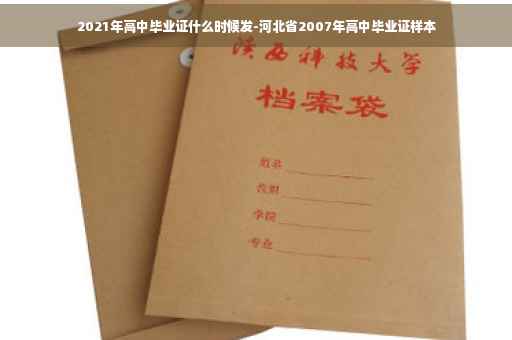 2021年高中毕业证什么时候发-河北省2007年高中毕业证样本
陕西科技大学
档案袋
姓名
学院
专业